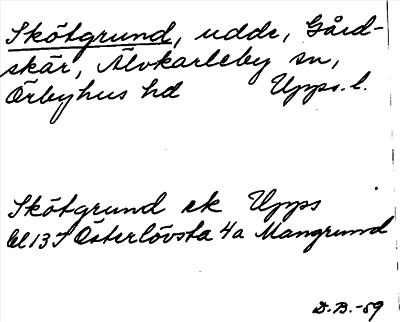 Skötgrund, udde, Gård-
skär, Älvkarleby sn,
Örbyhus hd Upps. l.
Skötgrund ek Upps
bl 13 Österlövsta 4a Mangrund
D.B.-59